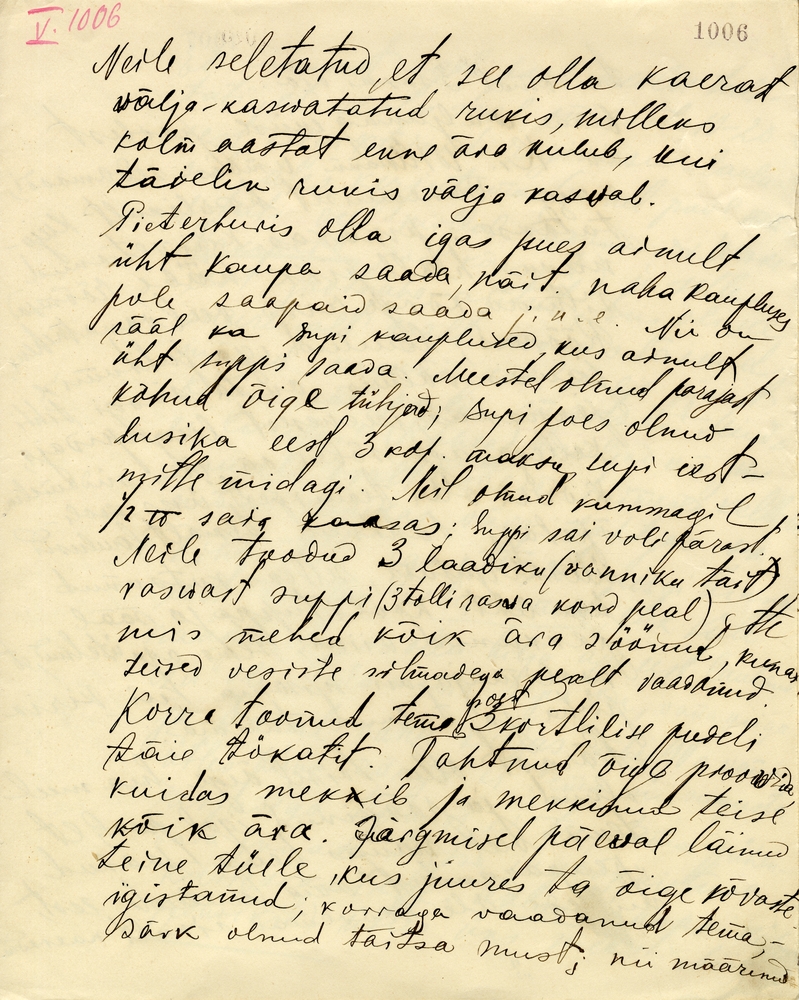 V. 1006
1006
Neile seletatud, et see olla kaerast
wälja-kaswatatud rukis, milleks
kolm aastat enne ära kulub, kui
täielik rukis välja kaswab.
Pieterburis olla igas pues ainult
üht kaupa saada, näit. naha kaupluses
pole saapaid saada j. n. e. Nii on
sääl ka supi kauplused, kus ainult
üht suppi saada. Meestel olnud parajast
kõhud õige tühjad; supi poes olnud
lusika eest 3 kop. maksu, supi eest –
mitte midagi. Neil olnud kummagil
1/2 ℔ saia kaasas; suppi sai voli pärast.
Neile toodud 3 laadiku (vanniku täit)
raswast suppi (3 tolli raswa kord peal) ette
mis mehed kõik ära söönud, kunas
teised vesiste silmadega pealt vaadanud.
Korra toonud tema poest 3 kortlilise pudeli
täie tökatit. Tahtnud õige proowida,
kuidas mekkib ja mekkinud teise
kõik ära. Järgmisel päewal läinud
teine tüele, kus juures ta õige kõvaste
igistanud; korraga vaadanud tema, –
särk olnud täitsa must; nii määrinud